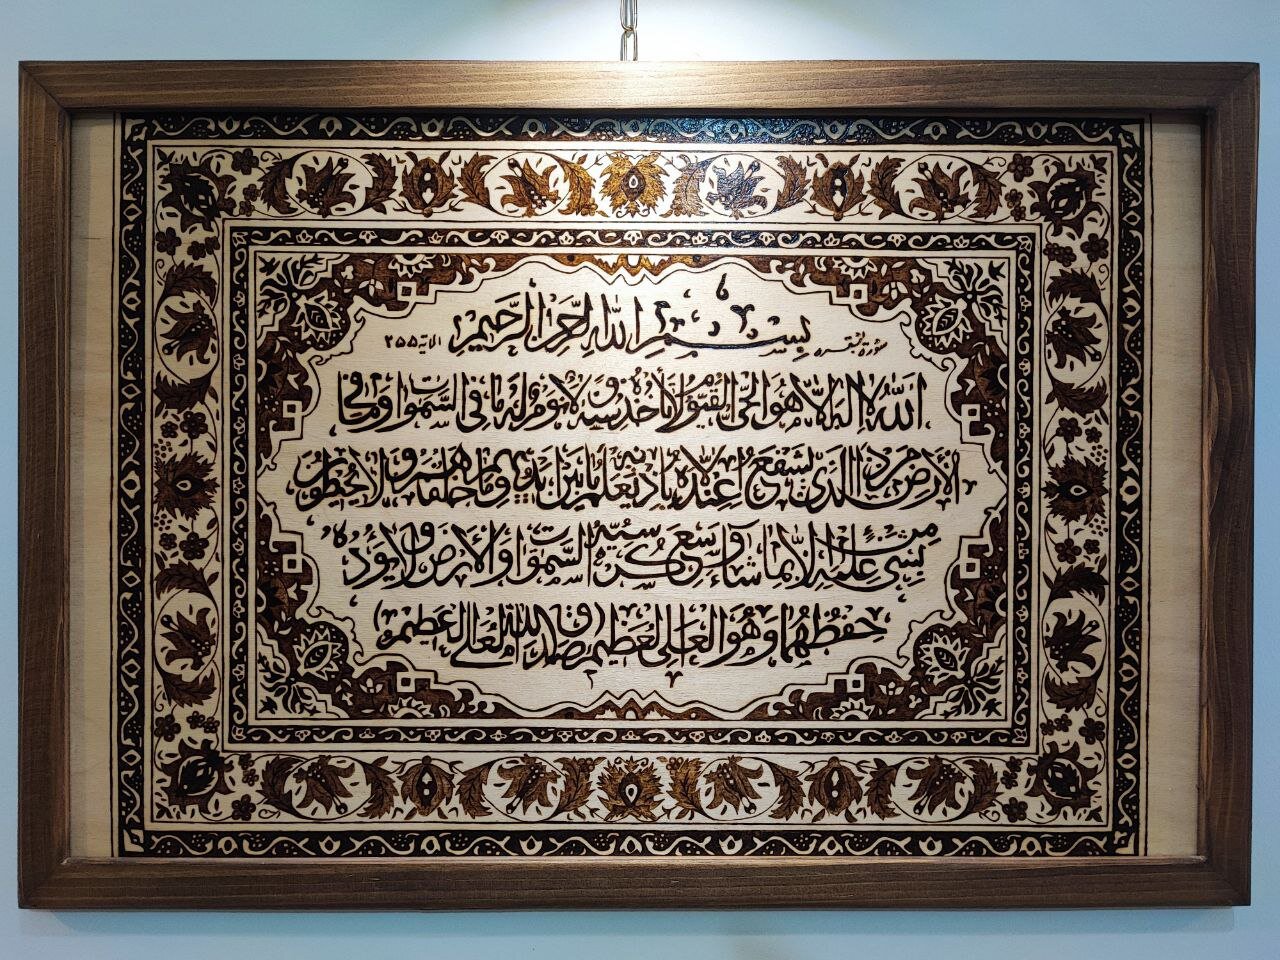 سورة بقره بِسْمِ اللَّهِ الرَّحْمٰنِ الرَّحِيمِ الاية ٢٥٥
اللَّهُ لَا إِلَهَ إِلَّا هُوَ الْحَيُّ الْقَيُّومُ لَا تَأْخُذُهُ سِنَةٌ وَلَا نَوْمٌ لَهُ مَا فِي السَّمٰوَاتِ وَمَا فِي
الْأَرْضِ مَنْ ذَا الَّذِي يَشْفَعُ عِنْدَهُ إِلَّا بِإِذْنِهِ يَعْلَمُ مَا بَيْنَ أَيْدِيهِمْ وَمَا خَلْفَهُمْ وَلَا يُحِيطُونَ
بِشَيْءٍ مِنْ عِلْمِهِ إِلَّا بِمَا شَاءَ وَسِعَ كُرْسِيُّهُ السَّمٰوَاتِ وَالْأَرْضَ وَلَا يَؤُدُهُ
حِفْظُهُمَا وَهُوَ الْعَلِيُّ الْعَظِيمُ (صدق الله العلي العظيم)